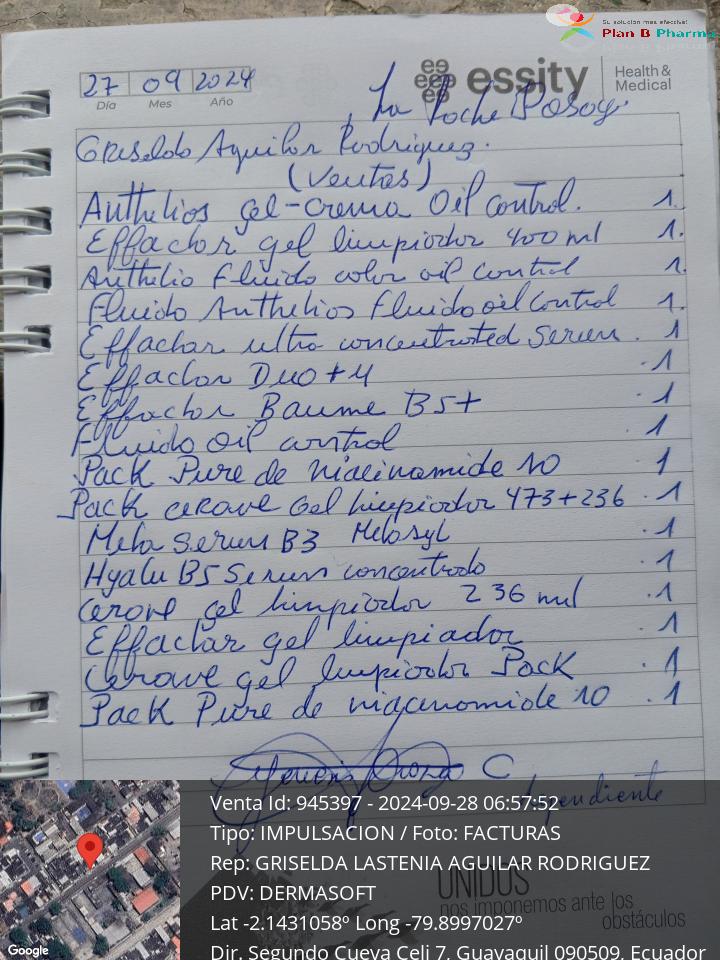 Su solución más efectiva!
Plan B Pharma
27 09 2024
Día Mes Año
essity Health & Medical
La Roche Posay.
Griselda Aguilar Rodriguez.
(Ventas)
Anthelios gel-crema Oil control. 1.
Effaclar gel limpiador 400 ml 1.
Anthelio Fluido color oil control 1.
Fluido Anthelios Fluido oil control 1.
Effaclar ultra concentrated serum. 1
Effaclar Duo + M .1
Effaclar Baume B5+ .1
Fluido Oil control 1
Pack Pure de niacinamide 10 1
Pack cerave Gel limpiador 473+236 .1
Mela serum B3 Melasyl .1
Hyalu B5 Serum concentrado .1
Cerave gel limpiador 236 ml .1
Effaclar gel limpiador .1
Cerave gel limpiador Pack .1
Pack Pure de niacinamide 10 .1
C
UNIDOS
nos imponemos ante los
obstáculos
Venta Id: 945397 - 2024-09-28 06:57:52
Tipo: IMPULSACION / Foto: FACTURAS
Rep: GRISELDA LASTENIA AGUILAR RODRIGUEZ
PDV: DERMASOFT
Lat -2.1431058º Long -79.8997027º
Dir. Segundo Cueva Celi 7, Guayaquil 090509, Ecuador
Google